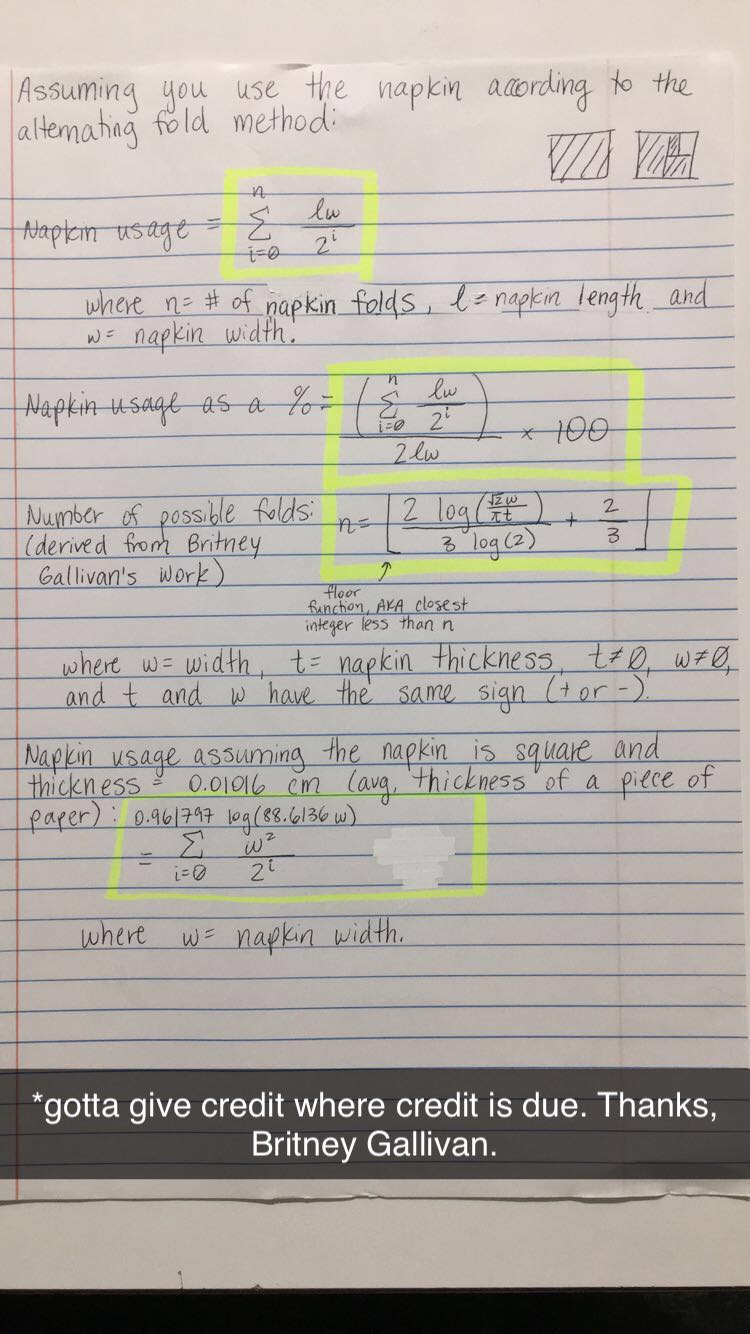 Assuming you use the napkin according to the
alternating fold method:
Napkin usage = n∑i=0 lw/2^i
where n= # of napkin folds, l = napkin length and
w= napkin width.
Napkin usage as a % = (n∑i=0 lw/2^i)/2lw × 100
Number of possible folds: n= ⌊2 log(√2w/πt)/3 log(2) + 2/3⌋
(derived from Britney
Gallivan's work)
floor
function, AKA closest
integer less than n
where w= width, t= napkin thickness, t≠0, w≠0,
and t and w have the same sign (+ or -).
Napkin usage assuming the napkin is square and
thickness = 0.01016 cm (avg. thickness of a piece of
paper): 0.961797 log(88.6136 w)
= ∑i=0 w²/2^i
where w= napkin width.
*gotta give credit where credit is due. Thanks,
Britney Gallivan.